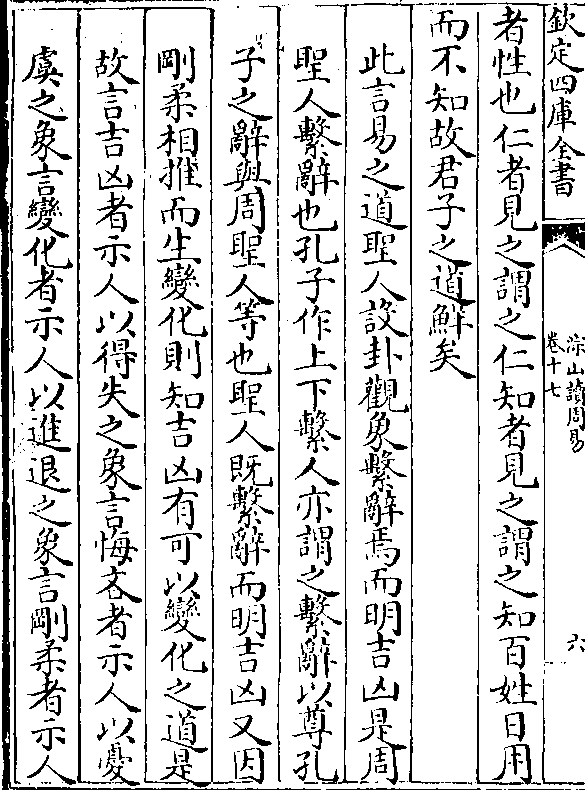 欽定四庫全書
淙山讀周易
卷十七
六
者性也仁者見之謂之仁知者見之謂之知百姓日用
而不知故君子之道鮮矣
此言易之道聖人設卦觀象繫辭焉而明吉凶是周
聖人繫辭也孔子作上下繫人亦謂之繫辭以尊孔
子之辭與周聖人等也聖人既繫辭而明吉凶又因
剛柔相推而生變化則知吉凶有可以變化之道是
故言吉凶者示人以得失之象言悔吝者示人以憂
虞之象言變化者示人以進退之象言剛柔者示人